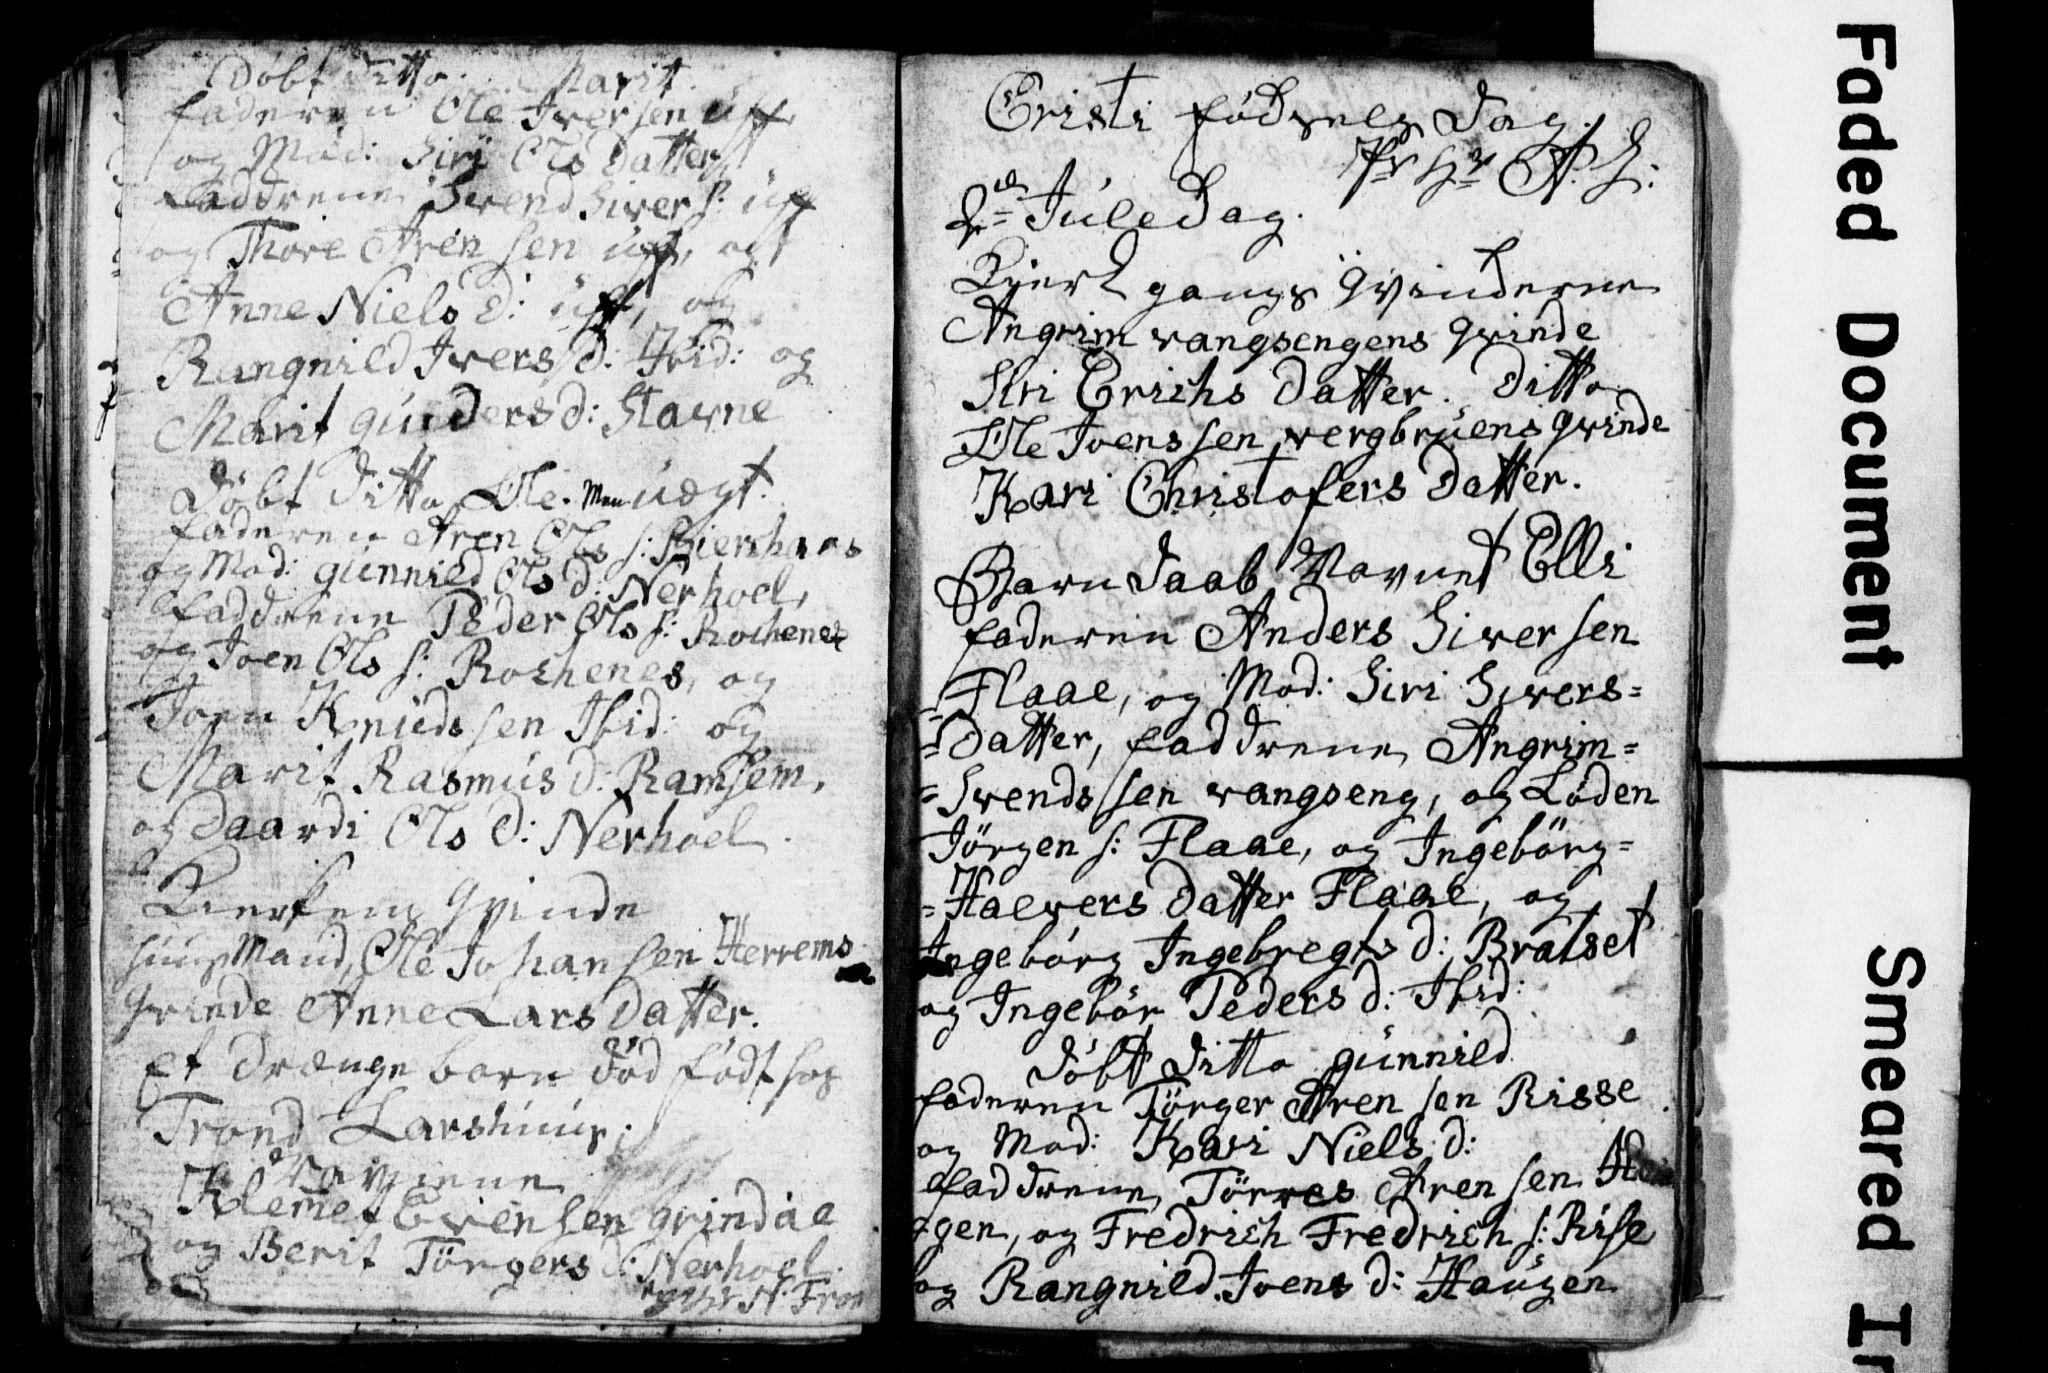 Döbt ditto. Marit
faderen Ole Iversen üff
og Mod: Siri Ols Datter
faddrene Svend Siver s: üff
og Thore Aren sen üff, og
Anne Niels d: üff, og
Rangnild Ivers d: Ibid: og
Marit günders d: Stavne
Döbt ditto Ole. Men üægt.
faderen Aren Ols s: Bierkhaas
og Mod: günnild Ols d: Nerhoel,
faddrene Peder Ols s: Rochenes
og Joen Ols s: Rochenes, og
Joen Knüds sen Ibid: og
Marit Rasmüs d: Ramsem,
og Daardi Ols d: Nerhoel.
qvinde
huus Mand, Ole Johan sen Herrems
qvinde Anne Lars Datter.
Et drænge barn död födt hos
Trond Larshuus;
Klemet Evensen grindae
og Berit Törgers d: Nerhoel.
Cristi födsels Dag.
Pr Hr A. H:
2den Jüledag.
Kierk gangs qvinderne
Angrim vangsengens qvinde
Siri Erichs Datter. Ditto
Ole Joens sen vergbrüens qvinde
Kari Christofers Datter.
Barn Daab Navnet Elli
faderen Anders Siver sen
Flaae, og Mod: Siri Sivers=
=Datter, faddrene Angrim=
=Svends sen vangseng, og Loden
Jörgen s: Flaae, og Ingebörg=
=Haevers datter Flaae, og
Ingebörg Ingebregts d: Bratset
og Ingebör Peders d: Ibid:
Döbt ditto günnild
faderen Törger Aren sen Risse
og Mod: Kari Niels d:
faddrene, Törres Aren sen
gen, og Fredrich Fredrich s: Rise
og Rangnild Joens d: Haugen
Faded Document
Smeared In